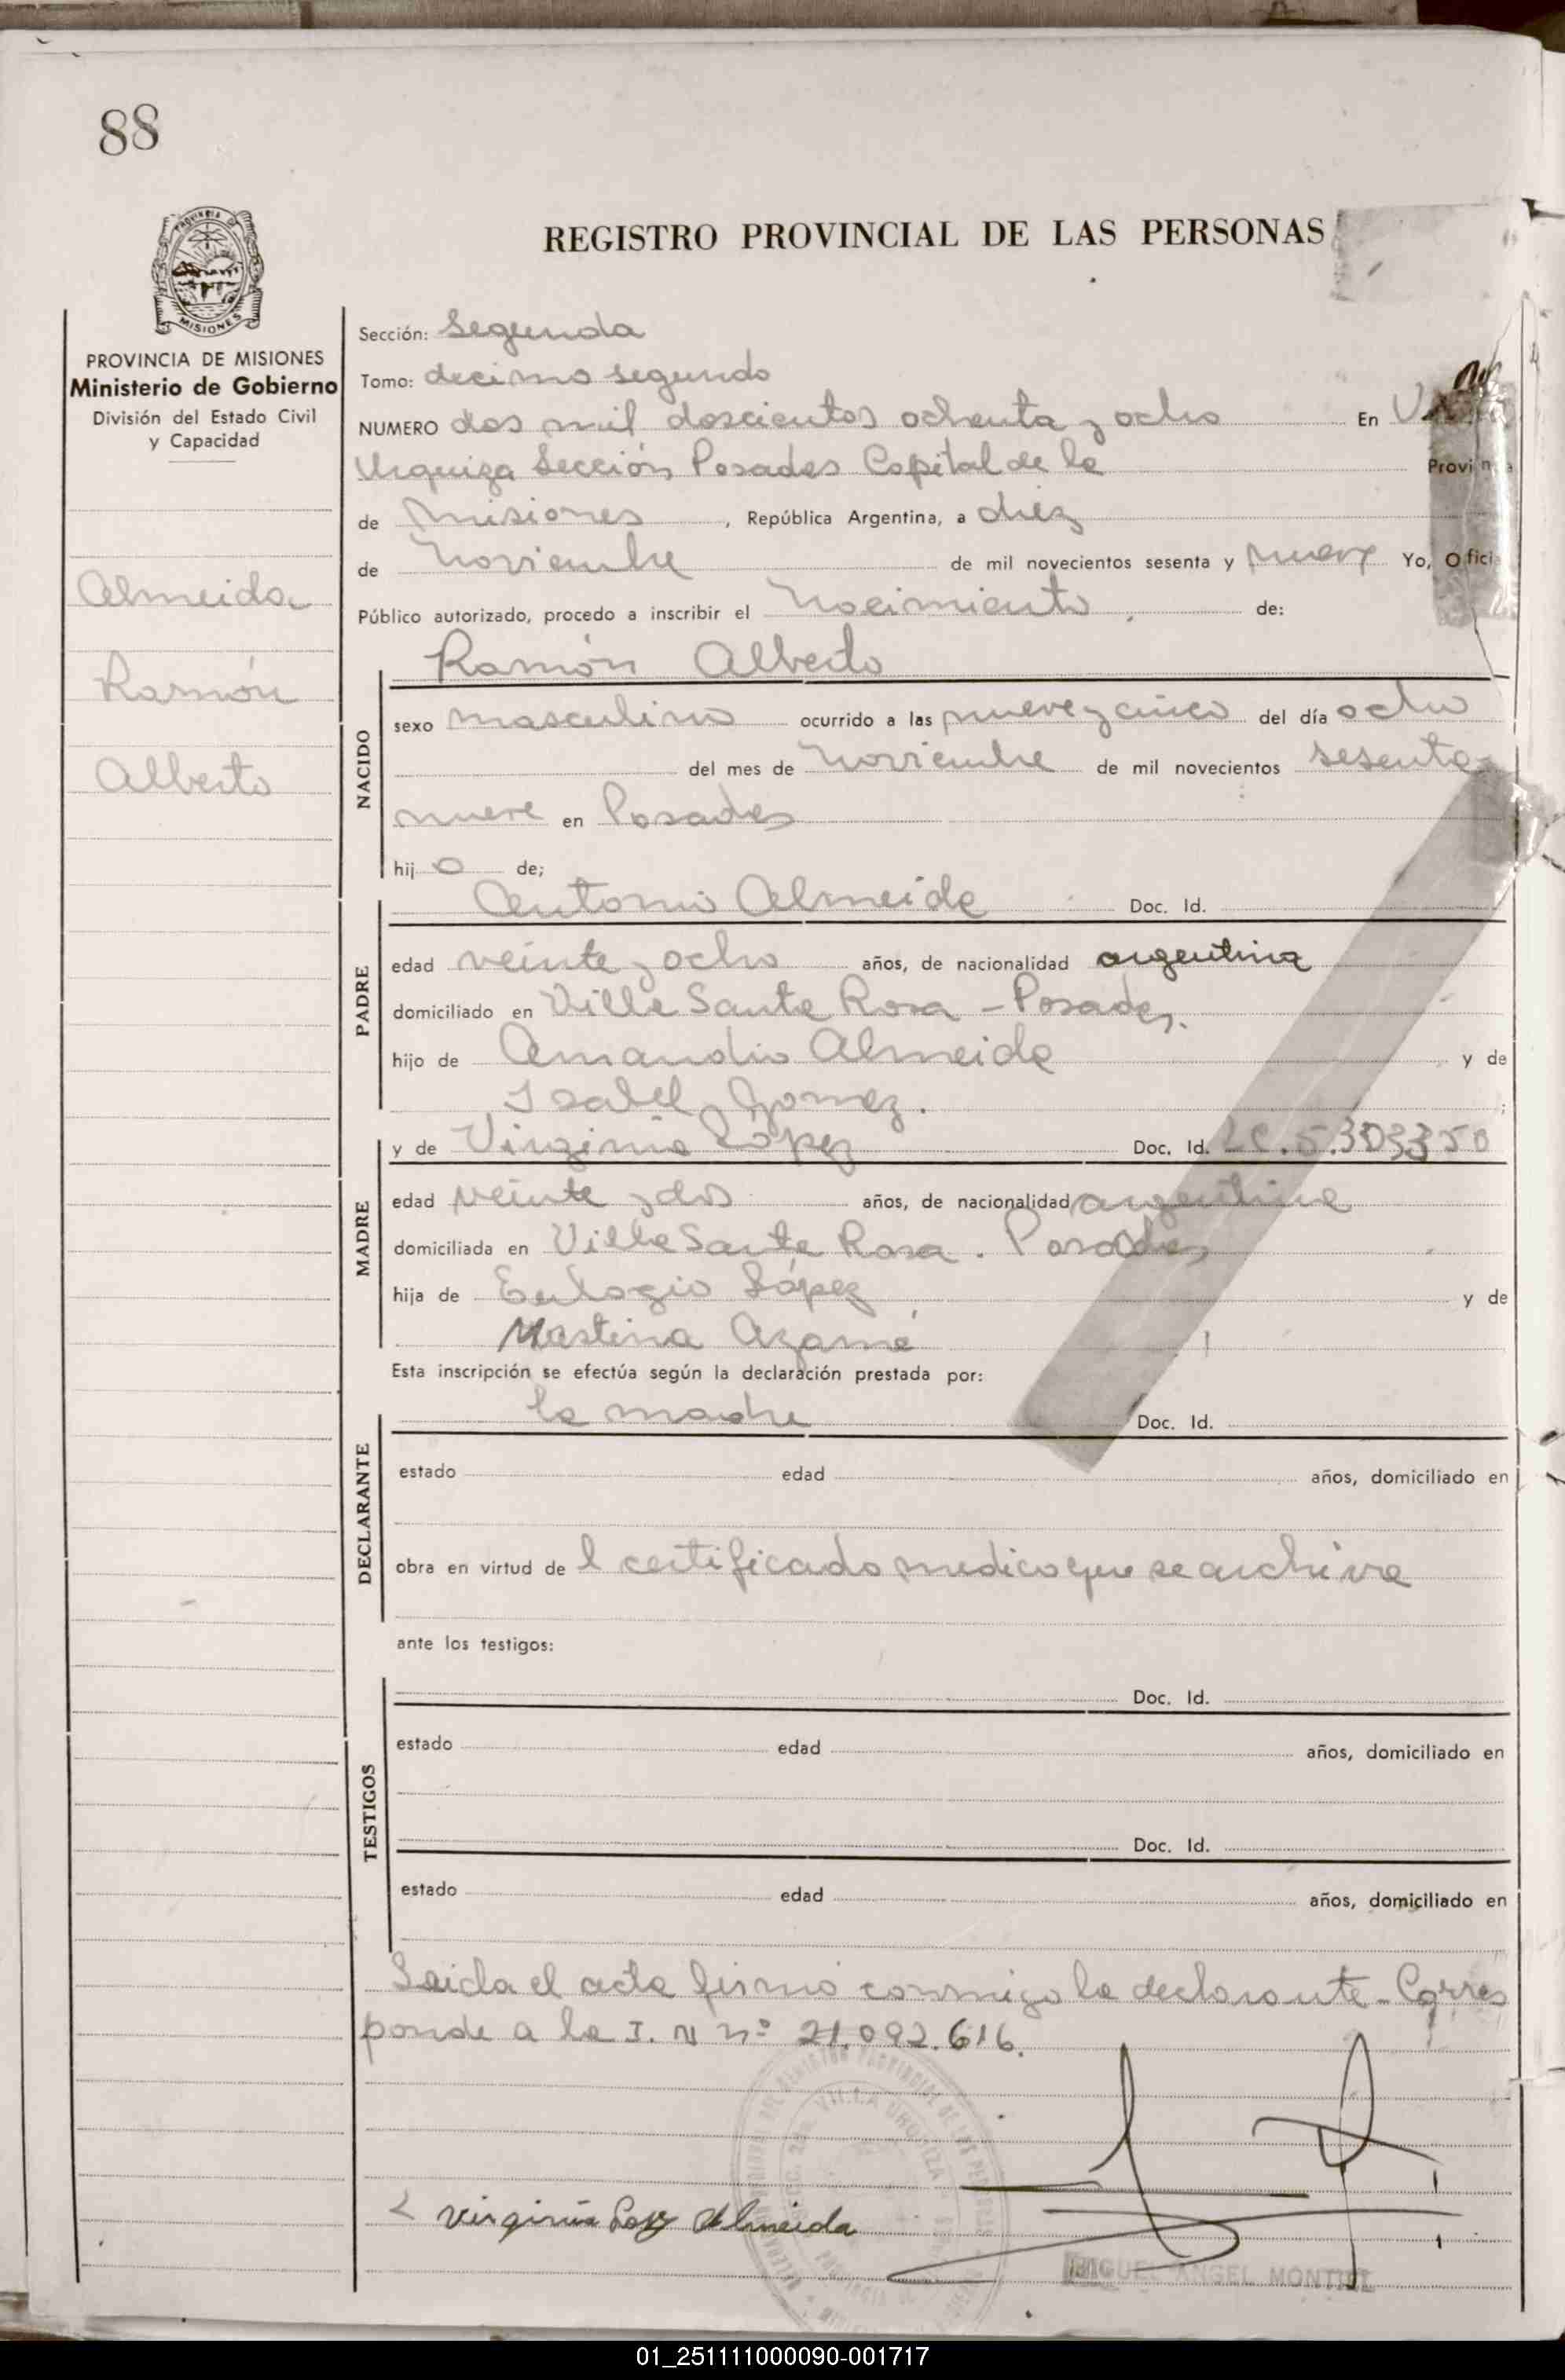 88
REGISTRO PROVINCIAL DE LAS PERSONAS
PROVINCIA DE MISIONES
Ministerio de Gobierno
División del Estado Civil
y Capacidad
Almeida
Ramón
Alberto
Sección: Segunda
Tomo: decimo segundo
NUMERO dos mil doscientos ochenta y ocho En
Urquiza Sección Posadas Capital de la Provincia
de Misiones, República Argentina, a diez
de Noviembre de mil novecientos sesenta y nueve Yo, Oficial
Público autorizado, procedo a inscribir el Nacimiento de:
Ramón Alberto
NACIDO
sexo masculino ocurrido a las nueve y cinco del día ocho
del mes de Noviembre de mil novecientos sesenta
nueve en Posadas
hijo de;
PADRE
Antonio Almeida Doc. Id.
edad veinte y ocho años, de nacionalidad argentina
domiciliado en Villa Santa Rosa - Posadas.
hijo de Amandio Almeida y de
Isabel Gomez.;
MADRE
y de Virginia López Doc. Id. LC. 5.303350
edad veinte y dos años, de nacionalidad argentina
domiciliada en Villa Santa Rosa. Posadas
hija de Eulogio López y de
Mastina Azame
Esta inscripción se efectúa según la declaración prestada por:
DECLARANTE
la madre Doc. Id.
estado edad años, domiciliado en
obra en virtud del certificado medico que se archiva
ante los testigos:
TESTIGOS
Doc. Id.
estado edad años, domiciliado en
Doc. Id.
estado edad años, domiciliado en
Leida el acta firmó conmigo la declarante - Corres
ponde a la I. N nº 21.092.616.
Virginia Almeida
MIGUEL ANGEL MONTIEL
01_251111000090-001717